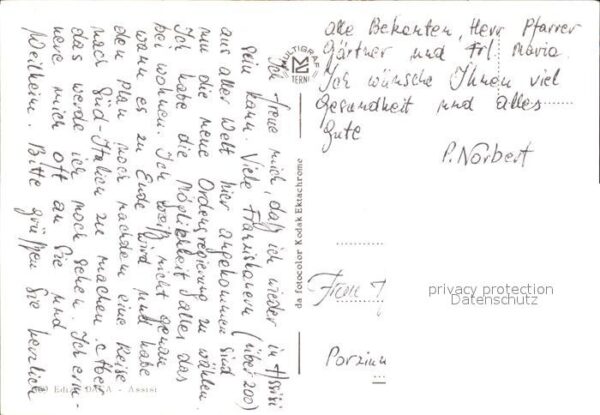 Ich freue mich, daß ich wieder in Assisi
sein kann. Viele Franziskaner (über 200)
aus aller Welt hier angekommen sind
um die neue Ordensregierung zu wählen.
Ich habe die Möglichkeit alles das
bei wohnen. Ich weiß nicht genau
wann es zu Ende wird und habe
den Plan noch nachdem eine Reise
nach Süd-Italien zu machen. Aber
das werde ich noch sehen. Ich erin-
nere mich oft an Sie und
Weilheim. Bitte grüßen Sie herzlich
alle Bekanten, Herr Pfarrer
Gärtner und Frl. Maria.
Ich wünsche Ihnen viel
Gesundheit und alles
Gute
P. Norbert
MULTIGRAF
TERNI
da fotocolor Kodak Ektachrome
Ediz. DACA - Assisi
Frau
Porzium
privacy protection
Datenschutz